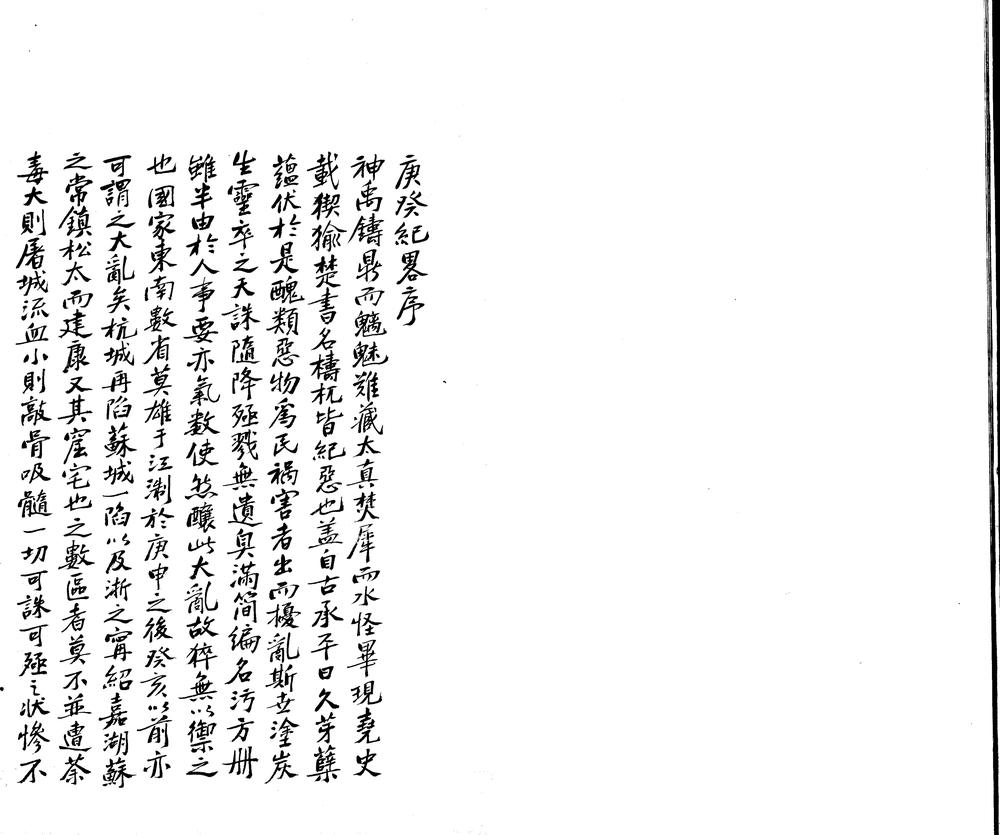 庚癸紀畧序
神禹鑄鼎而魑魅難藏太真焚犀而水怪畢現堯史
載猰貐楚書名檮杌皆紀惡也盖自古承平日久芽孽
蘊伏於是醜類惡物爲民禍害者出而擾亂斯世塗炭
生靈卒之天誅隨降殛戮無遺臭滿簡編名污方册
雖半由於人事要亦氣数使然釀此大亂故猝無以禦之
也國家東南數省莫雄于江淛於庚申之後癸亥以前亦
可謂之大亂矣杭城再陷蘇城一陷以及浙之甯紹嘉湖蘇
之常鎮松太而建康又其窟宅也之數區者莫不並遭荼
毒大則屠城流血小則敲骨吸髓一切可誅可殛之狀慘不